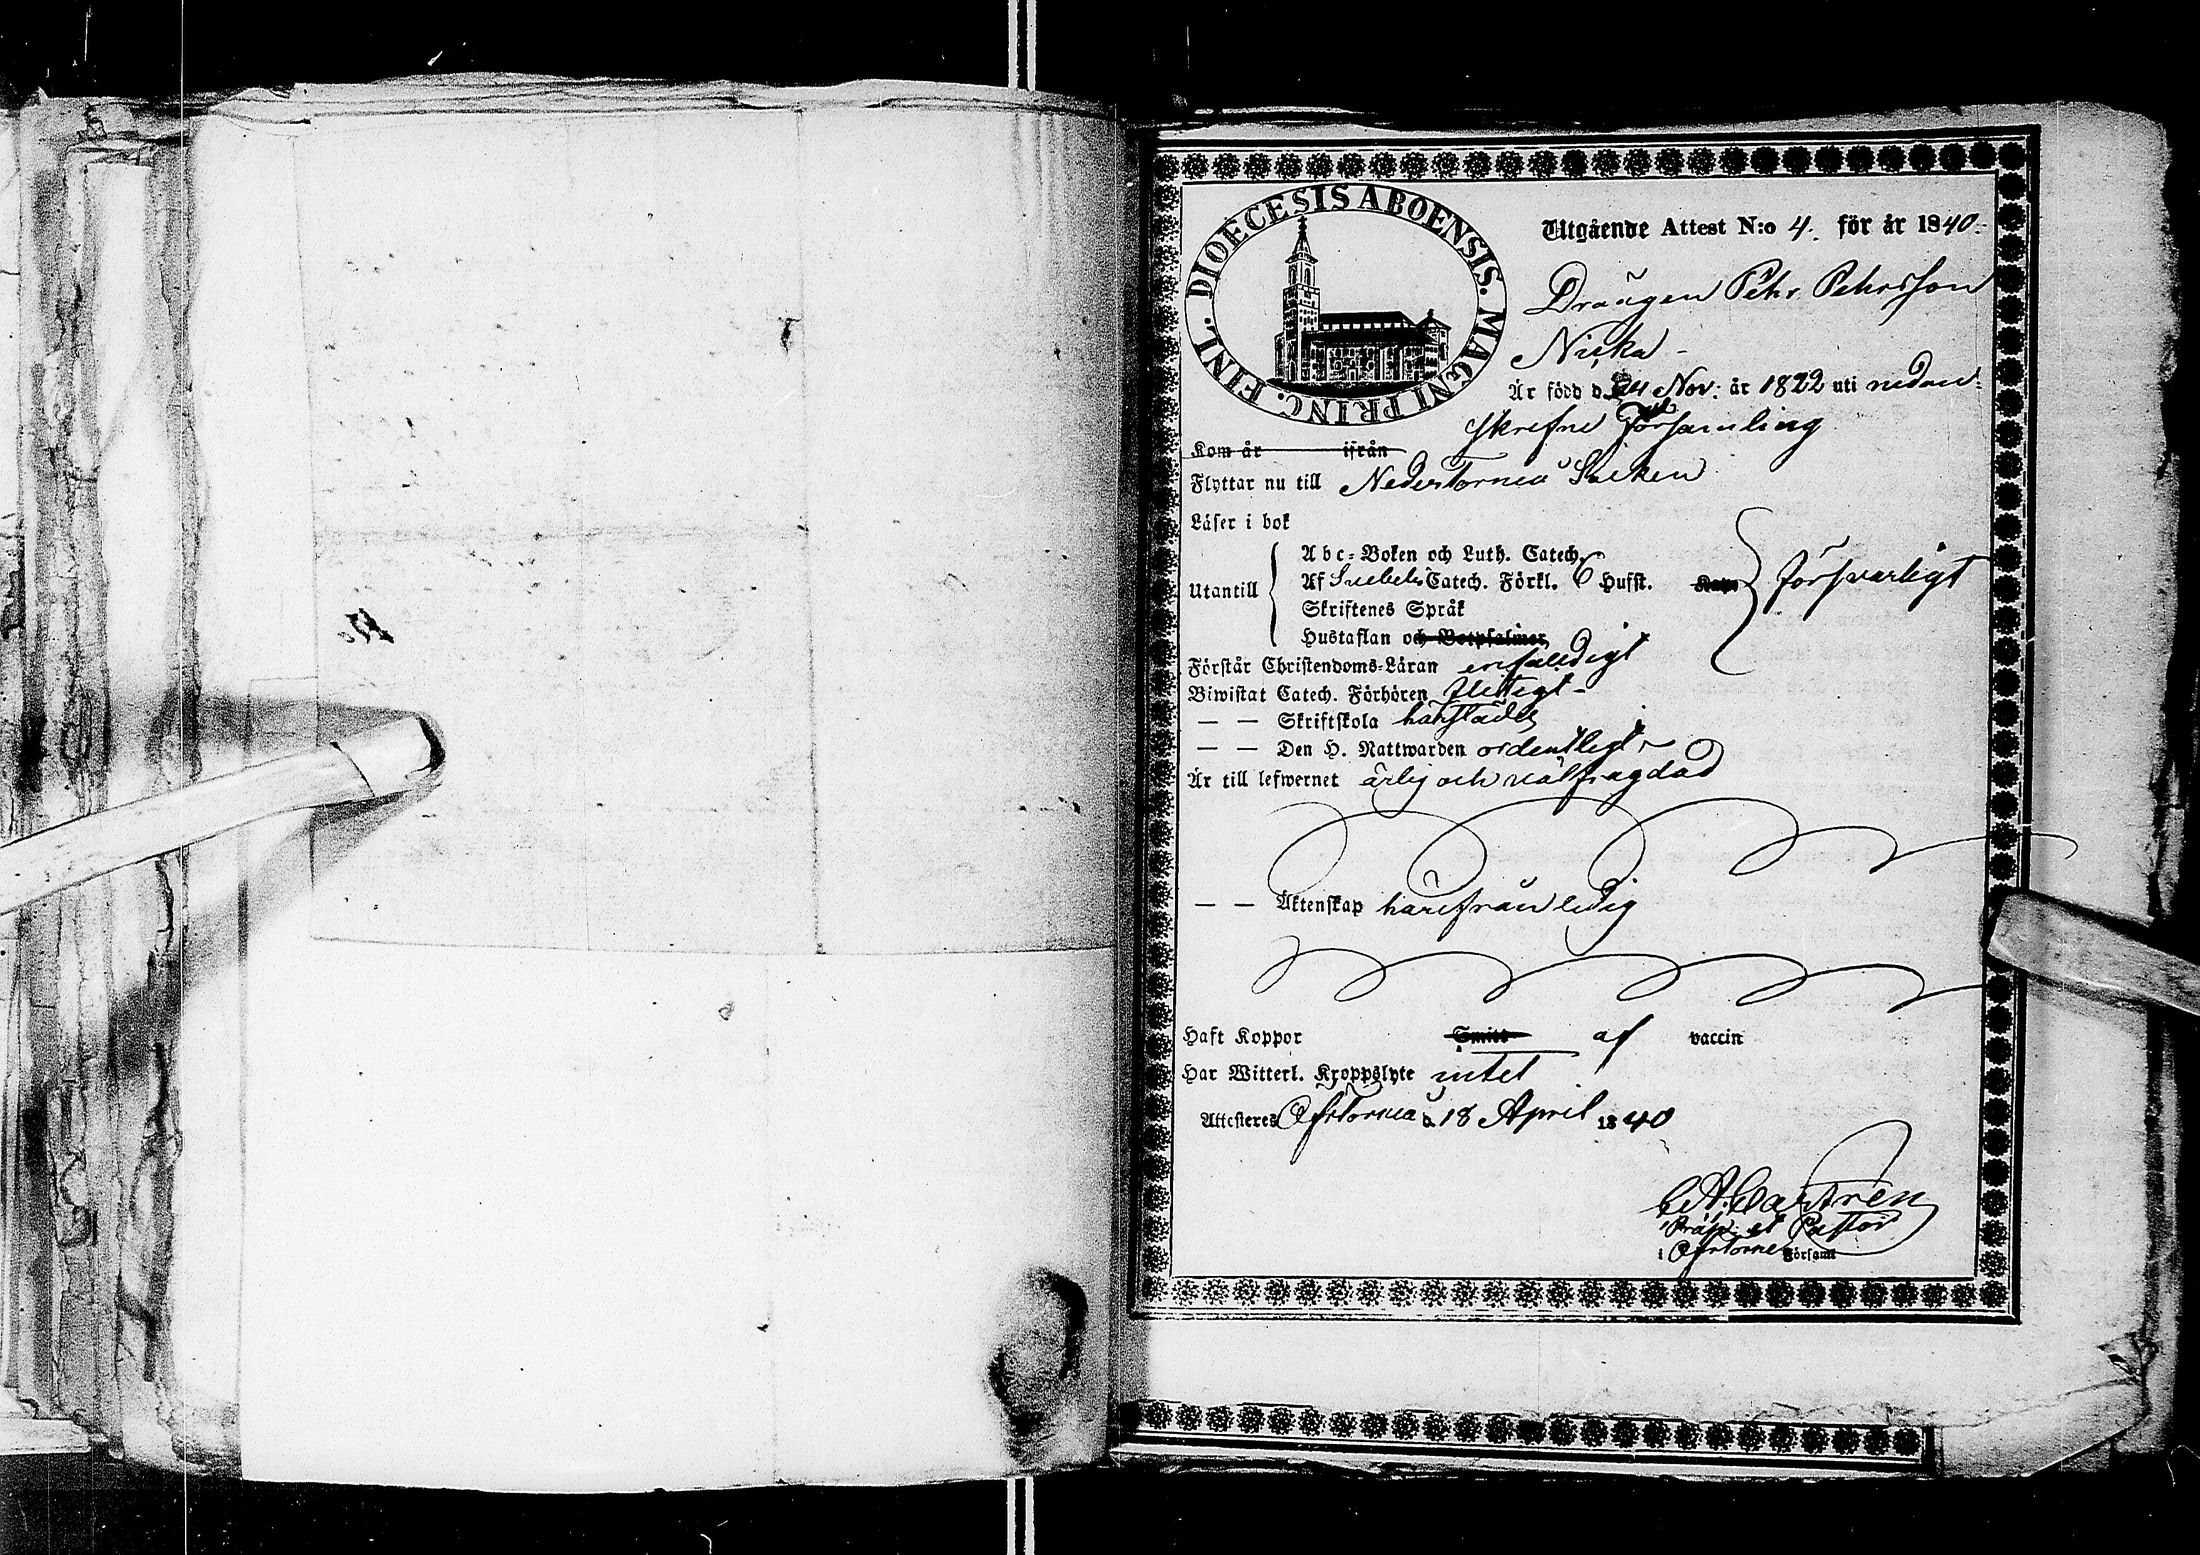 DIOECESIS ABOENSIS. MAGNI PRINC. FINL.
Utgående Attest N:o 4. för år 1840.
Drängen Pehr Pehrsson
Niska
Är född d. 24 Nov: år 1822 uti nedan-
skrefne Församling
Kom år ifrån
Flyttar nu till Nedertorneå Socken
Läser i bok
Abc-Boken och Luth. Catech.
Utantill Af Svebelii Catech. Förkl. 6 Hufst. försvarligt
Skriftenes Språk
Hustaflan och Botpsalmer
Förstår Christendoms-Läran enfaldigt
Biwistat Catech. Förhören flitigt
— — Skriftskola härstädes
— — Den H. Nattwarden ordentligt
Är till lefwernet ärlig och välfrägdad
— — Äktenskap härifrån ledig
Haft Koppor Smitt af vaccin
Har Witterl. Kroppslyte intet
Attesteras Öfvertorneå d. 18 April 1840
Castrén
Præp. et Pastor
i Öfvertorneå Församl